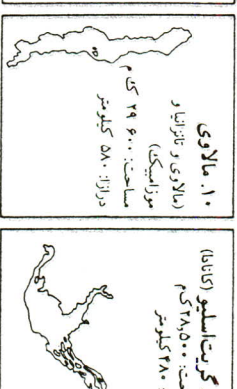 ۱۰. مالاوی
(مالاوی و تانزانیا و
موزامبیک)
مساحت: ۲۹ ۶۰۰ ک م
درازا: ۵۸۰ کیلومتر
گریت‌اسلیو (کانادا)
مت: ۲۸٫۵۰۰ ک‌م
۴۸۰ کیلومتر